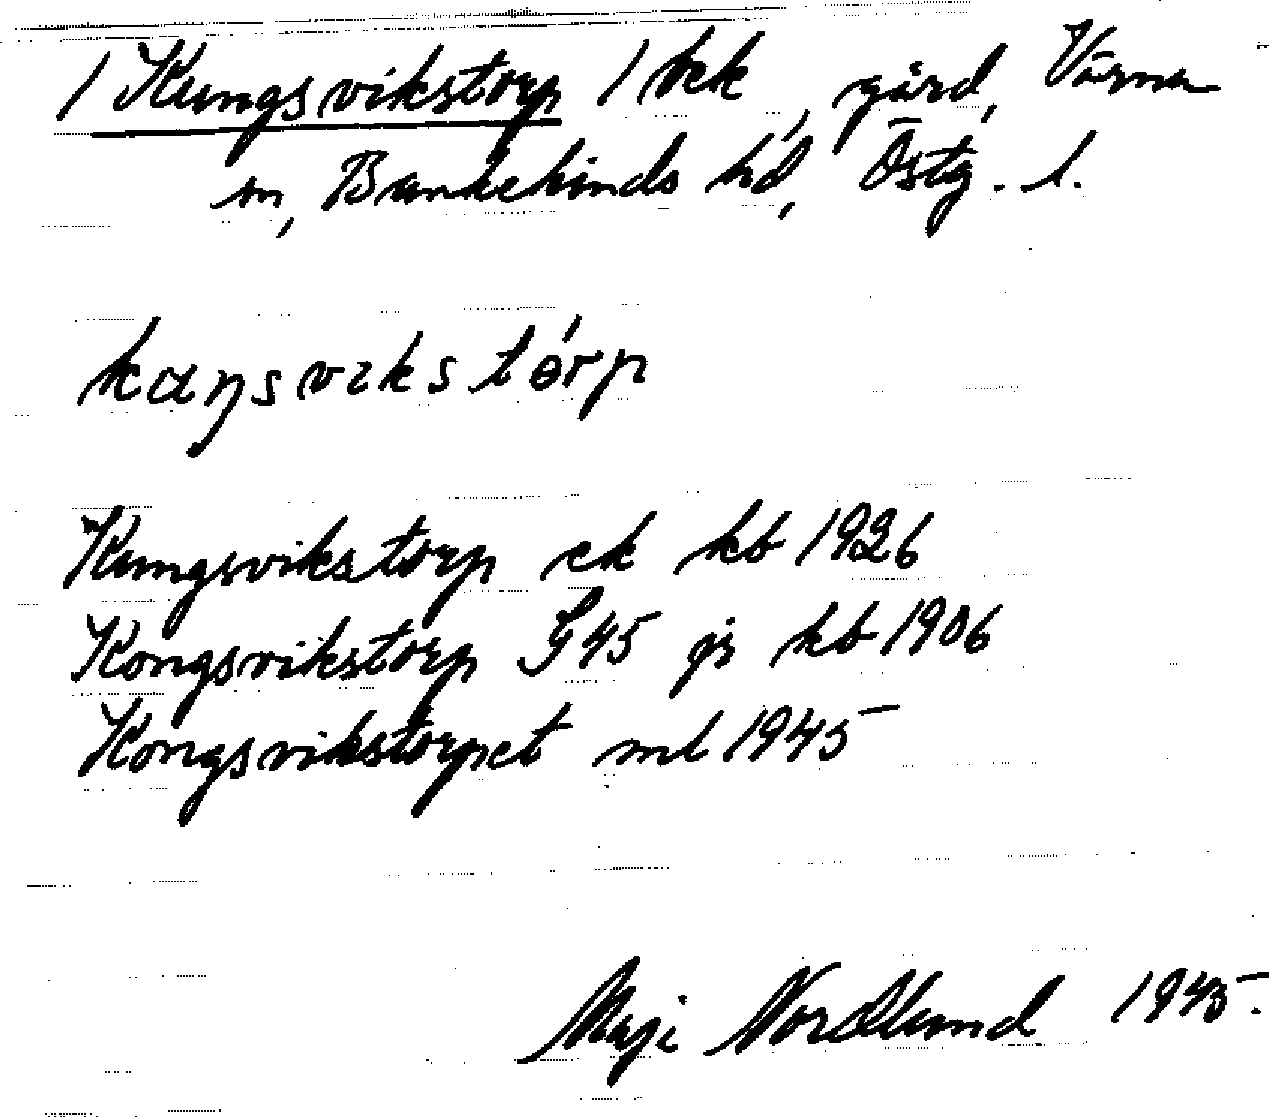 / Kungsvikstorp / kck, gård, Värna
sn, Bankekinds hd, Östg. l.
kaŋsvıkstɵ́rp
Kungsvikstorp ek kb 1926
Kongsvikstorp G45 js kb 1906
Kongsvikstorpet ml 1945
Maji Nordlund 1945.